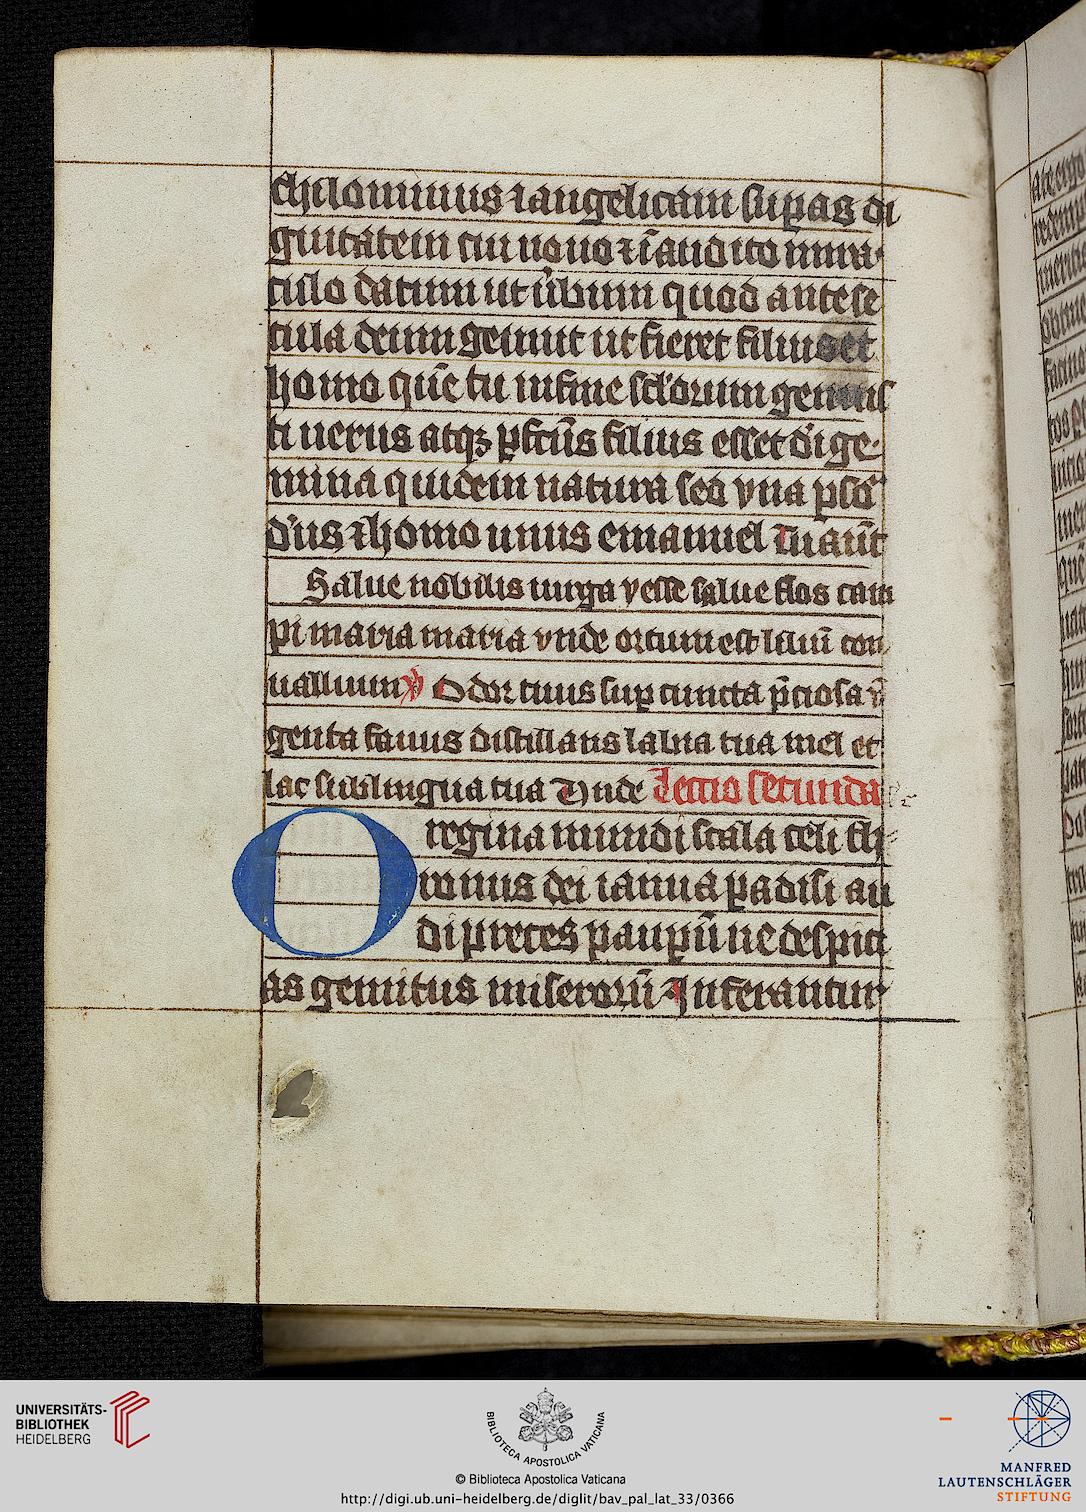 chilominus ⁊ angelicam sup̱as di
gnitatem cui nouo ⁊ īaudito mira
culo datum ut ūbum quod ante se
cula deum genuit ut fieret filius et
homo quē tu in fine sclorum genuis
ti uerus atqꝫ ꝑfctūs filius esset dī ge
mina quidem natura sed vna ꝑsō
dūs ⁊ homo unus emanuel Tu aūt
Salue nobilis uirga yesse salue flos cam
pi maria maria vnde ortum est liliū con
uallium ℣ Odor tuus suꝑ cuncta p̄ciosa v̄
genta fauus distillans labia tua mel et
lac sub lingua tua Vnde Lectio secunda
O regina mundi scala celi th
ronus dei ianua ꝑadisi au
di preces pauꝑū ne despici
as gemitus miserorū Inferantur
UNIVERSITÄTS-
BIBLIOTHEK
HEIDELBERG
BIBLIOTECA APOSTOLICA VATICANA
© Biblioteca Apostolica Vaticana
http://digi.ub.uni-heidelberg.de/diglit/bav_pal_lat_33/0366
MANFRED
LAUTENSCHLÄGER
STIFTUNG